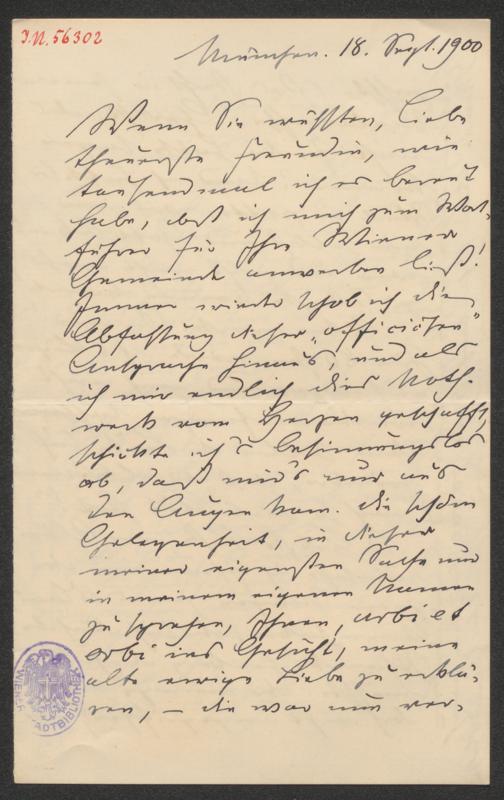 I.N. 56302
München. 18. Sept. 1900
Wenn Sie wüßten, liebe
theuerste Freundin, wie
tausendmal ich es bereut
habe, daß ich mich zum Wort-
führer für Ihre Wiener
Gemeinde anwerben ließ!
Immer wieder schob ich die
Abfassung dieser „officiösen"
Ansprache hinaus, und als
ich mir endlich dies Noth-
werk vom Herzen geschafft,
schickte ich's besinnungslos
ab, daß mir's nur aus
den Augen kam. Die schöne
Gelegenheit, in dieser
meiner eigensten Sache nur
in meinem eigenen Namen
zu sprechen, Ihnen, urbi et
orbi ins Gesicht, meine
alte ewige Liebe zu erklä-
ren, – die war nun ver-
WIENER STADTBIBLIOTHEK